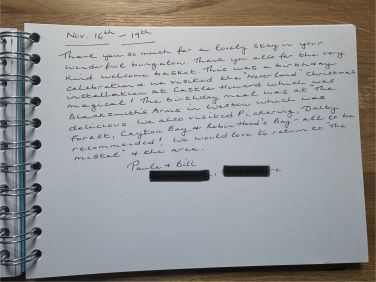 Nov. 16th – 19th
Thank you so much for a lovely stay in your
wonderful bungalow. Thank you also for the very
kind welcome basket. This was a birthday
celebration & we visited the "Neverland" Christmas
installation at Castle Howard which was
magical! The birthday meal was at The
Blacksmith's Arms in Westow which was
delicious. We also visited Pickering, Dalby
Forest, Cayton Bay & Robin Hood's Bay - all to be
recommended! We would love to return to "The
& the area.
Paula & Bill